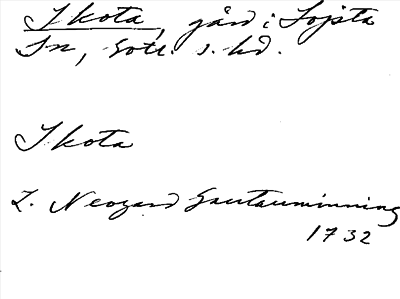 Skota, gård i Lojsta
Sn, Gotl. s. hd.
Skota
L. Neogard Gautauminning
1732